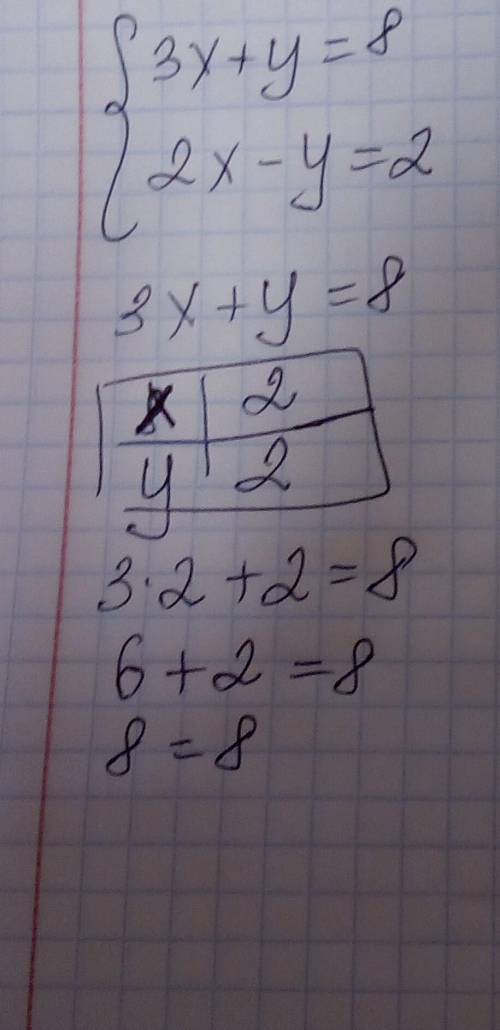 3x+y=8
2x-y=2
3x+y=8
x 2
y 2
3·2+2=8
6+2=8
8=8